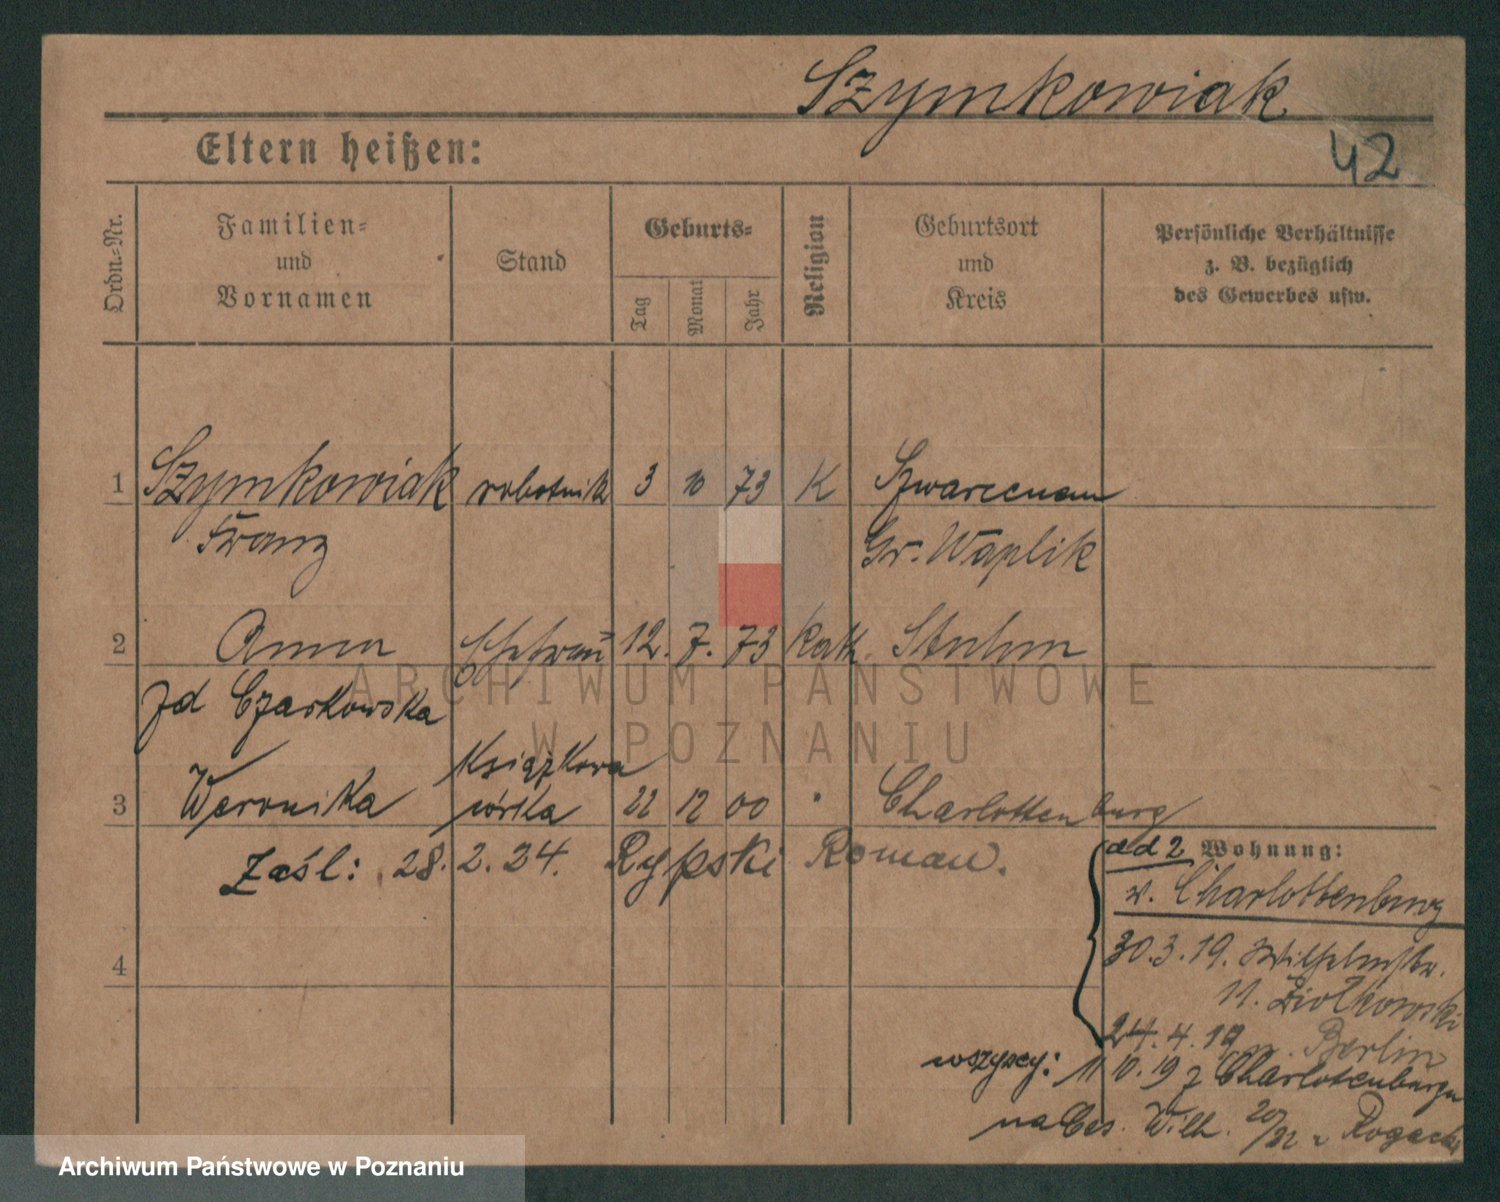 Szymkowiak
42
Eltern heißen:
Ordn.=Nr.
Familien=
und
Vornamen
Stand
Geburts=
Tag
Monat
Jahr
Religion
Geburtsort
und
Kreis
Persönliche Verhältnisse
z. B. bezüglich
des Gewerbes usw.
1 Szymkowiak robotnik 3 10 73 K Szwarcenau
Franz Gr. Waplik
2 Anna Ehefrau 12. 7. 73 kath. Stuhm
zd Czarkowska
Książkowa
3 Weronika 22 12 00 " Charlottenburg
Zaśl: 28. 2. 24. Rypski Roman.
ad 2 Wohnung:
v. Charlottenburg
4
30.3.19. Wilhelmstr.
11. Ziołkowski
24.4.19 n. Berlin
wszyscy: 11 10.19 z Charlotenburgu
na Ces. Wilh. 20/22 u Rogacki
ARCHIWUM PAŃSTWOWE
W POZNANIU
Archiwum Państwowe w Poznaniu